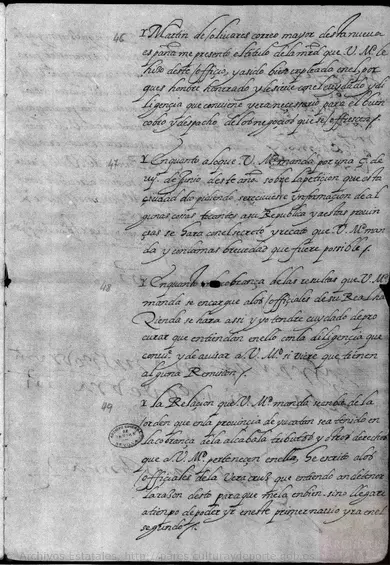 46 Martin de olivares correo mayor desta nueva
españa me presento el titulo de la mrd que V. Md. le
hizo deste officio, y a sido bien empleada en el, por
que es honbre honrado y le sirve con el cuydado y di
ligencia que conviene y era necessario para el buen
cobro y despacho de los negocios que se offrescen
47 En quanto a lo que V. Md. manda por una c. de
de Junio deste año sobre la peticion que esta
ciudad dio pidiendo se rescibiese informacion de al
gunas cosas tocantes a su Republica y a estas provin
cias se hara con el secreto y recato que V. Md. man
da y con la mas brevedad que fuere possible
48 En quanto cobrança de las resultas que V. Md.
manda se encargue a los officiales de su Real ha
zienda se hara assi y yo tendre cuydado de pro
curar que entiendan en ello con la diligencia que
convi. y de avisar a V. Md. si viere que tienen
alguna Remission
49 la Relacion que V. Md. manda se envie de la
horden que en la provincia de yucatan se a tenido en
la cobrança de la alcabala tributos y otros derechos
que a V. Md. pertenecen en ella, he escrito a los
officiales de la Vera cruz que entiendo an de tener
la razon desto para que me la enbien. si no llegare
a tiempo de poder yr en este primer navio yra en el
segundo